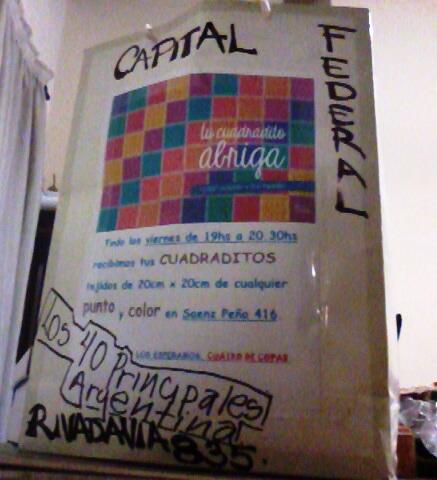 CAPITAL
FEDERAL
tu cuadradito
abriga
Todo los viernes de 19hs a 20.30hs
recibimos tus CUADRADITOS
tejidos de 20cm x 20cm de cualquier
punto y color en Saenz Peña 416
LOS ESPERAMOS. CUATRO DE COPAS
LOS 40 Principales
Argentina
RIVADAVIA 835.